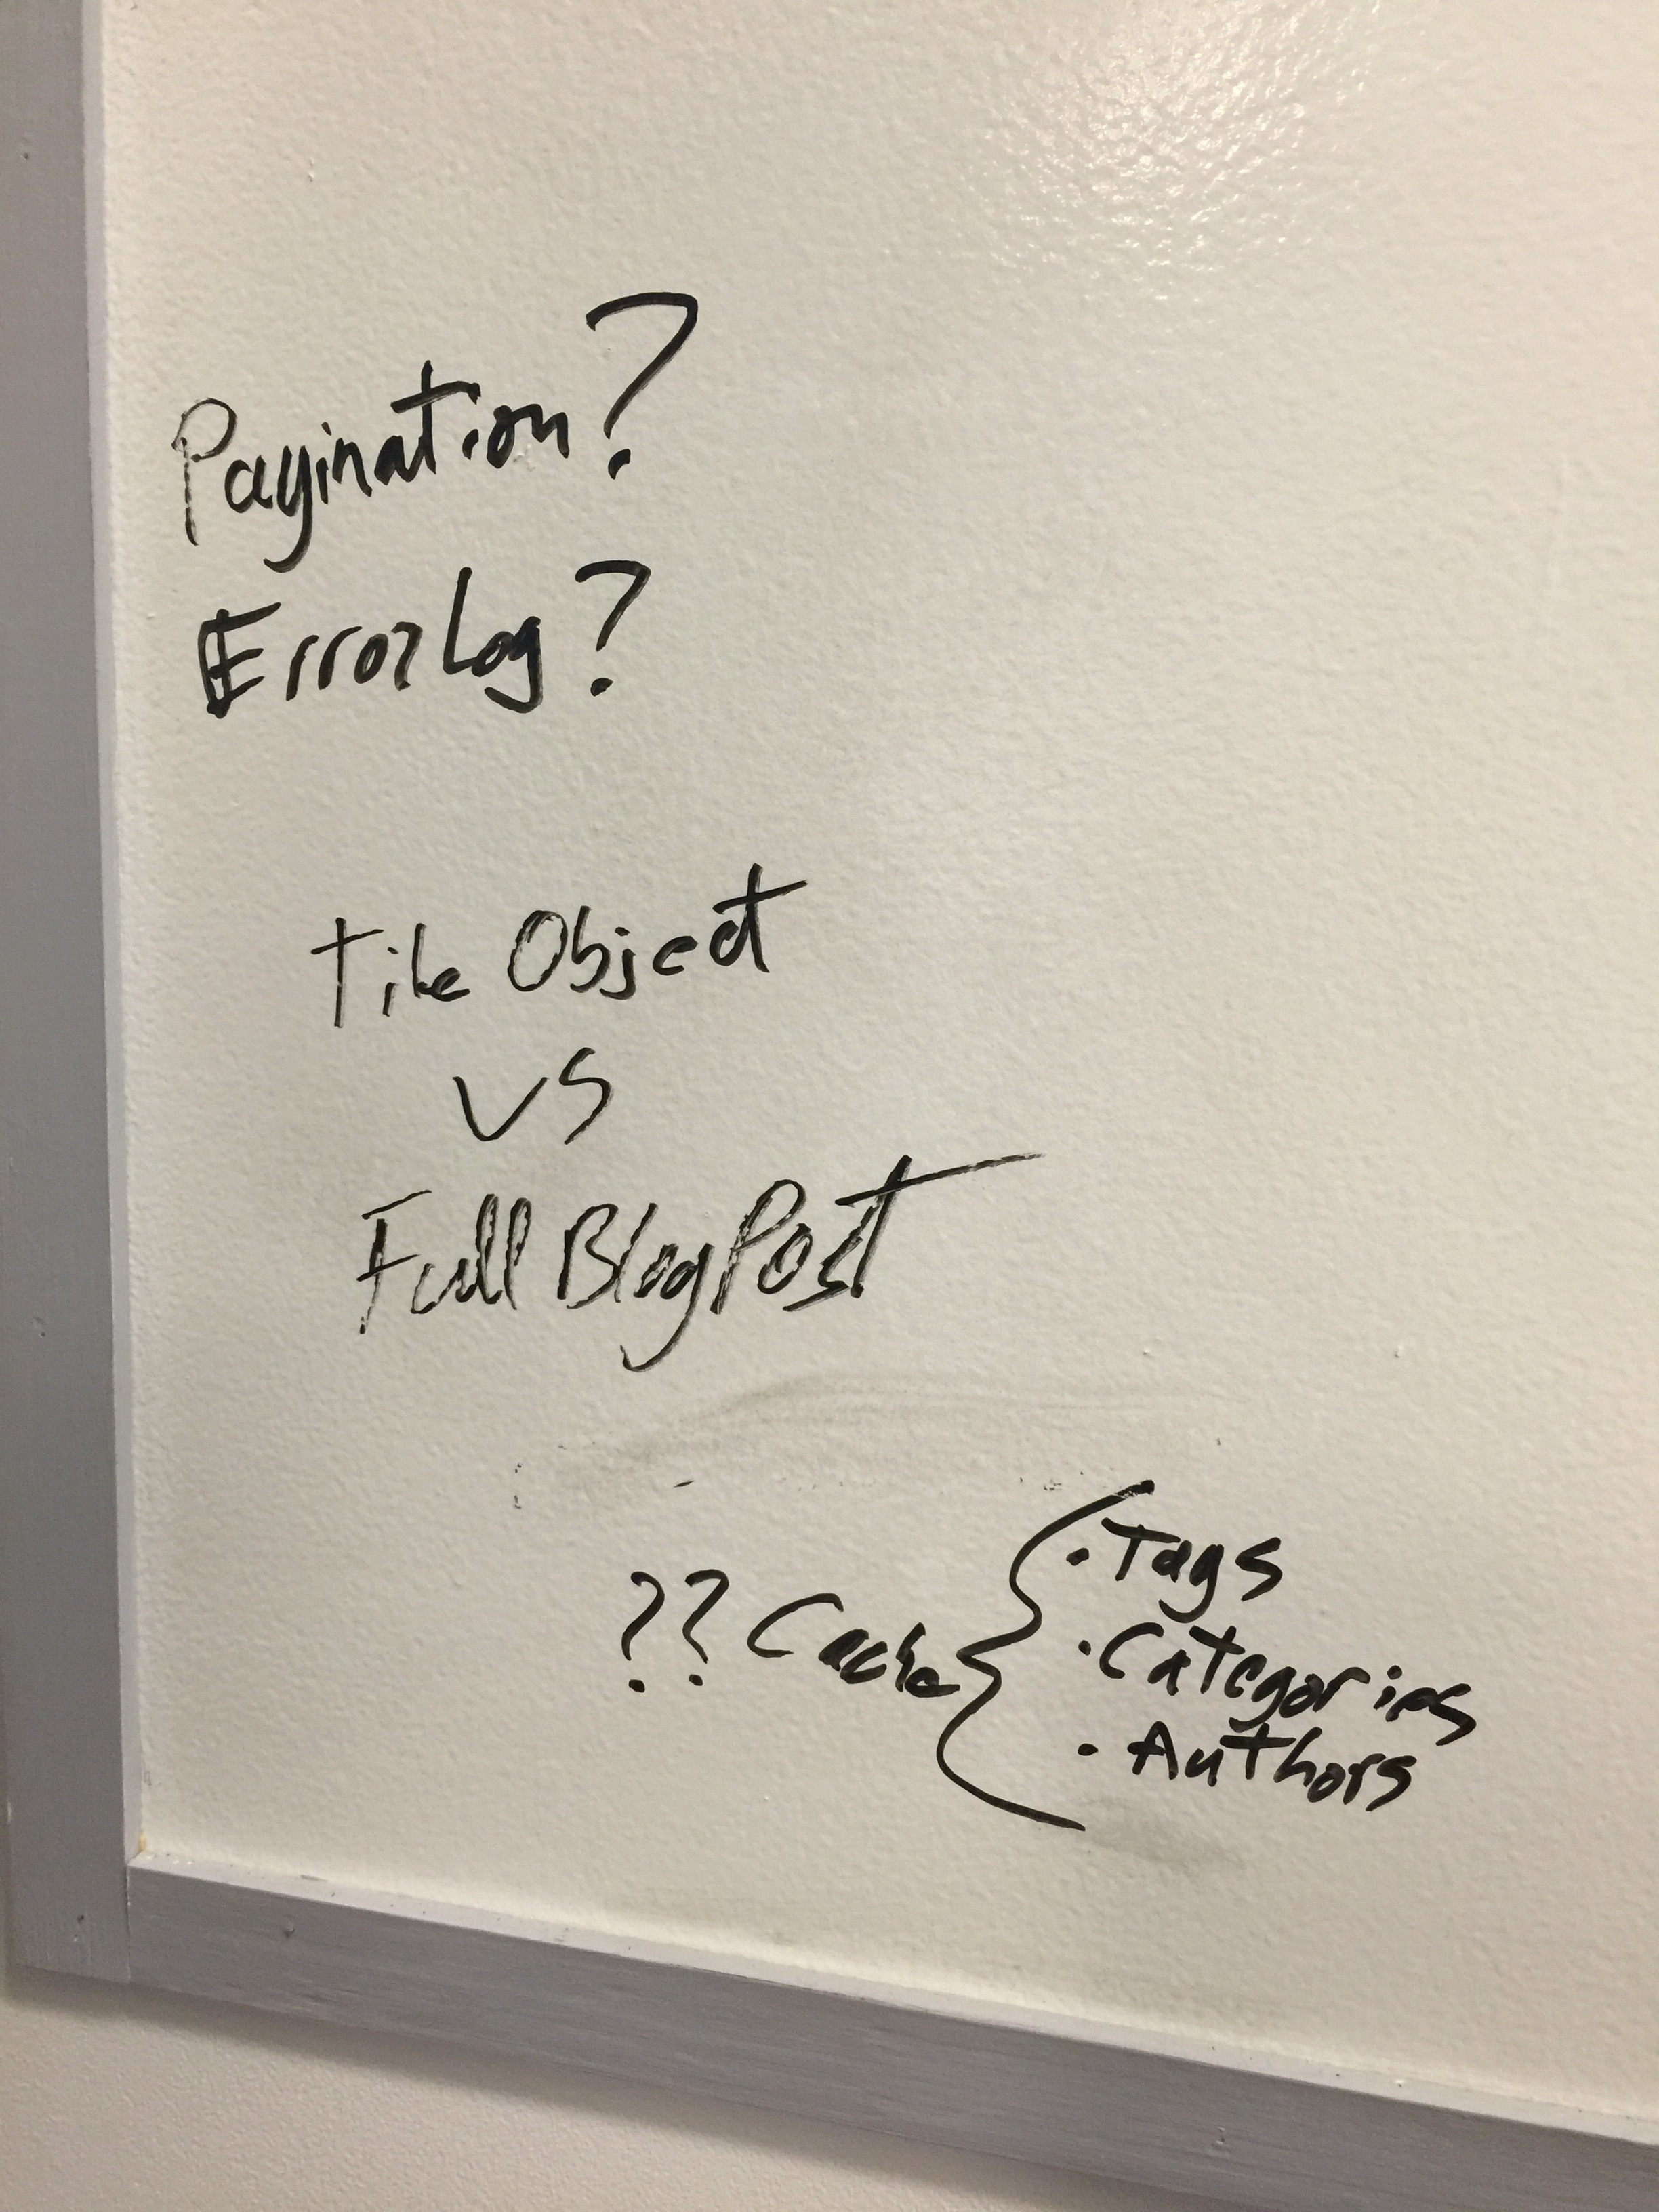 Pagination?
Error Log?
Tile Object
vs
Full Blog Post
?? Cache {
· Tags
· Categories
· Authors